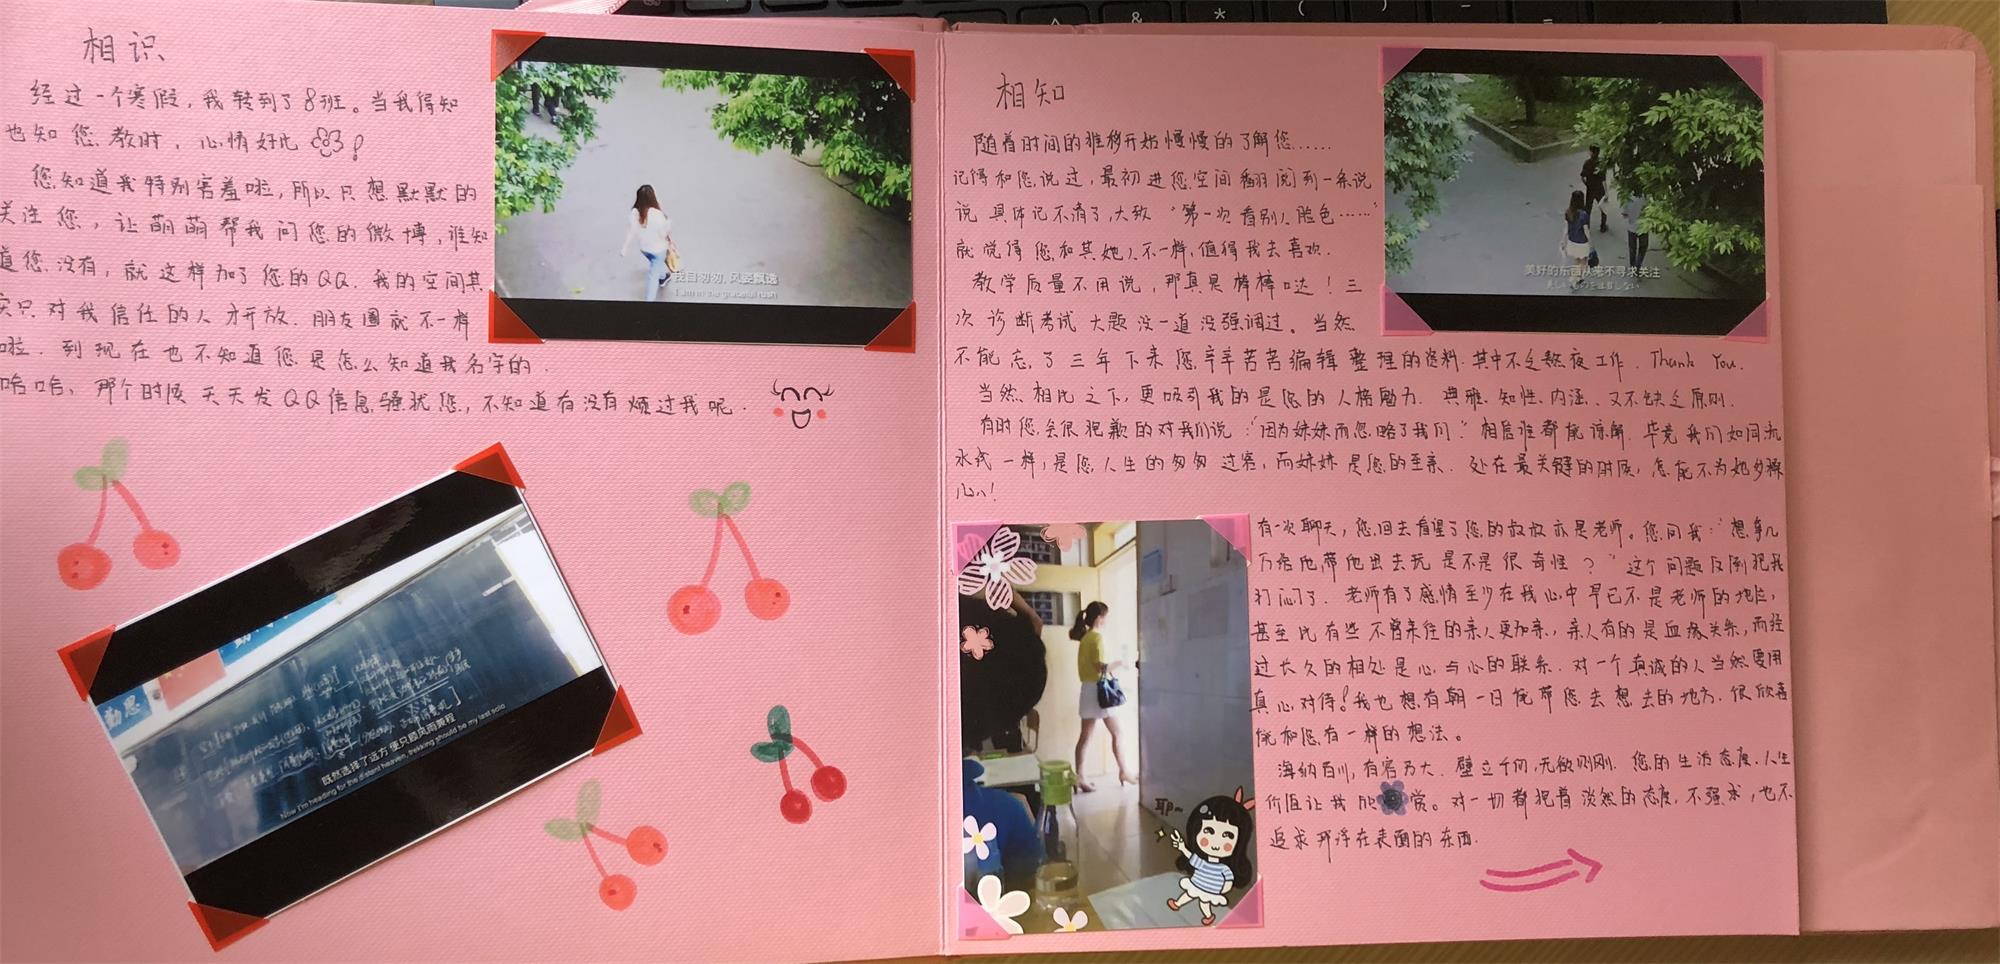 相识
经过一个寒假，我转到了8班。当我得知
也知您教时，心情好比
您知道我特别害羞啦，所以只想默默的
关注您，让萌萌帮我问您的微博，谁知
道您没有，就这样加了您的QQ.我的空间其
实只对我信任的人才开放.朋友圈就不一样
啦.到现在也不知道您是怎么知道我名字的.
哈哈，那个时候天天发QQ信息骚扰您，不知道有没有烦过我呢.
我自匆匆,风姿飘逸
I am in the graceful rush
勤思
既然选择了远方 便只顾风雨兼程
Now I'm heading for the distant heaven, trekking should be my last solo
相知
随着时间的推移开始慢慢的了解您……
记得和您说过，最初进您空间翻阅到一条说
说具体记不清了,大致“第一次看别人脸色……”
就觉得您和其她人不一样,值得我去喜欢.
教学质量不用说，那真是棒棒哒！三
次诊断考试大题没一道没强调过。当然
不能忘了三年下来您辛辛苦苦编辑整理的资料.其中不乏熬夜工作.Thank You.
当然,相比之下,更吸引我的是您的人格魅力.典雅、知性、内涵、又不缺乏原则.
有时您会很抱歉的对我们说：“因为妹妹而忽略了我们.”相信谁都能谅解.毕竟我们如同流
水线一样,是您人生的匆匆过客,而妹妹是您的至亲.处在最关键的时候,怎能不为她多操
心!
美好的东西从来不寻求关注
美しいものを注目しない
有一次聊天,您回去看望了您的叔叔亦是老师。您问我：“想拿几
万给他带他出去玩是不是很奇怪？”这个问题反倒把我
打闷了.老师有了感情至少在我心中早已不是老师的地位,
甚至比有些不曾来往的亲人更加亲,亲人有的是血缘关系,而经
过长久的相处是心与心的联系.对一个真诚的人当然要用
真心对待!我也想有朝一日能带您去想去的地方.很欣喜
能和您有一样的想法。
海纳百川,有容乃大.壁立千仞,无欲则刚.您的生活态度、人生
价值让我欣赏。对一切都抱着淡然的态度,不强求,也不
追求那浮在表面的东西.
耶~